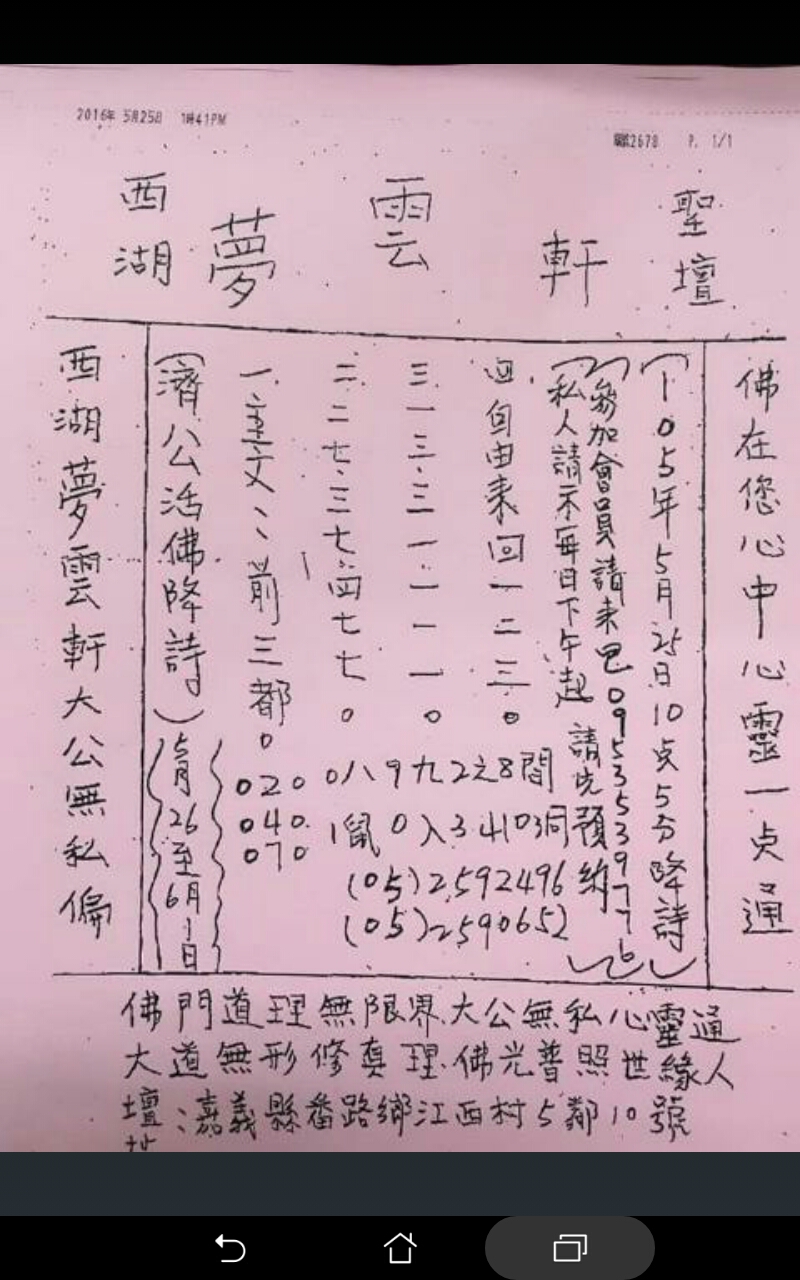 2016年 5月25日 1時41PM
2678 P. 1/1
西湖夢雲軒聖壇
佛在您心中心靈一点通
(105年5月25日10点5分降詩)
(參加會員請来电0953539776)
私人請示每日下午起 請先預約
四.自由来回一二三0
三.一三.三一一一一0
二.二七.三七.四七七0
一.主文、前三都0
020 0八9九2之8間
040. 1鼠0入3火103洞
070
(05)2592496
(05)2590652
(濟公活佛降詩)
5月26至6月1日
西湖夢雲軒大公無私偏
佛門道理無限界.大公無私心靈通
大道無形修真理.佛光普照世緣人
壇址:嘉義縣番路鄉江西村5鄰10號